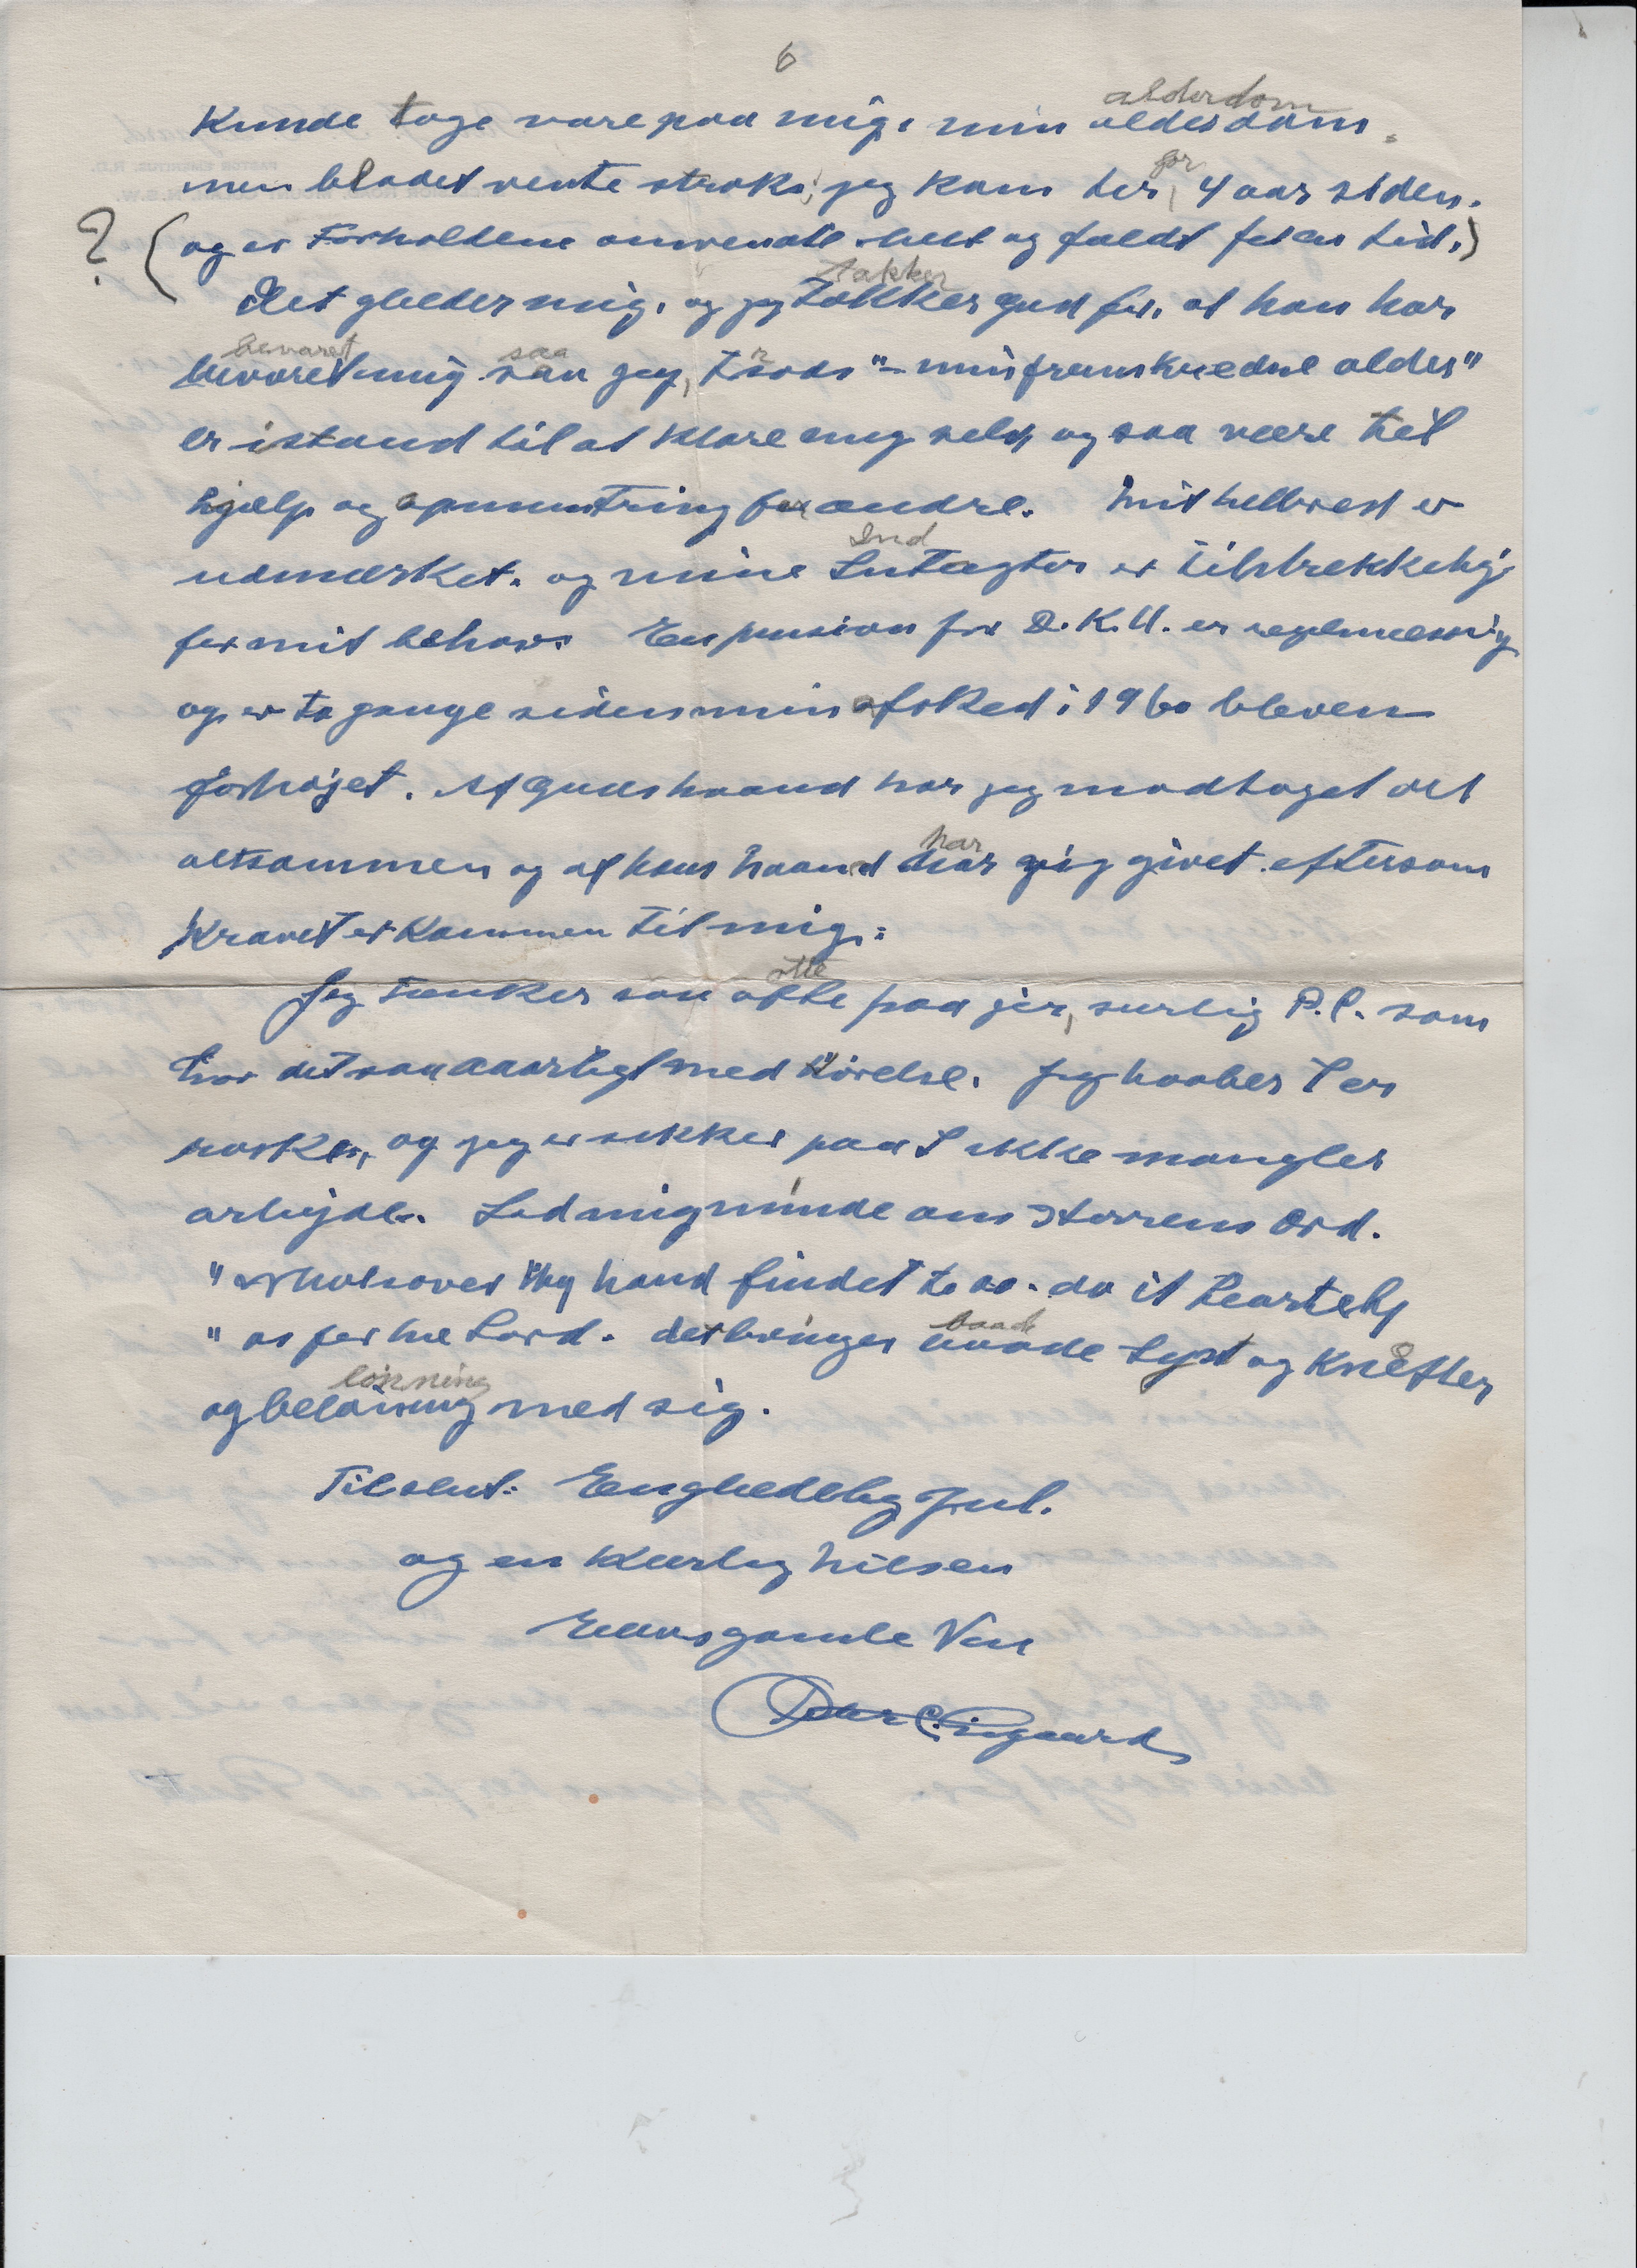 6
alderdom
Kunde tage vare paa mig i min aldersdom.
for
men bladet vente straks, jeg kom her, 4 aar siden.
? (og er Forholdene omvendte helt og fuldt for en tid.)
takker
Det glæder mig, og jeg takker Gud for, at han har
bevaret saa r
bevaret mig saa jeg, trods "min fremskredne alder"
er istand til at klare mig selv og saa være til
hjælp og opmuntring for andre. Mit helbred er
Ind
udmærket. og mine Intægter er tilstrekkelig
for mit behov. En pension fra D.K.U. er regelmæssig
og er to gange siden min afsked i 1960 bleven
forhøjet. Af Guds haand har jeg modtaget det
har
altsammen og af hans haand har jeg givet eftersom
Kravet er kommen til mig.
otte
Jeg tænker saa ofte paa jer, særlig P.C. som
har det saa daarligt med Hørelse. Jeg haaber I er
raske, og jeg er sikker paa I ikke mangler
arbejde. Lad mig minde om Herrens Ord.
"Whatsover thy hand findet to do. do it heartely
baade
" as for the Lord. det bringer baade Lyst og Kræfter
lønning
og beløning med sig.
Tilslut: En glædelig Jul.
og en Kærlig hilsen
Eders gamle Ven
Peter C.